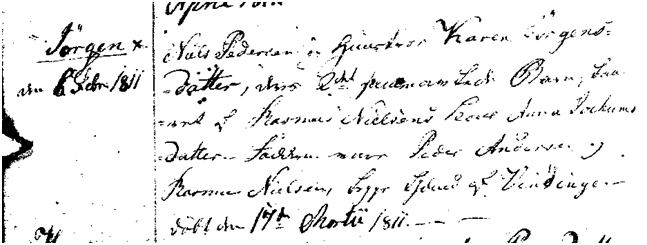 Jørgen x
den 6 Febr 1811
Niels Pedersen og Hustroe Karen Jørgens-
-datter, deres 2det sammen Barn, baa-
-ret af Rasmus Nielsens Kone Anna Jochums
datter. Faddere vare Peder Andersen og
Rasmus Nielsen, begge af Vindinge -
døbt den 17de Martii 1811. - -